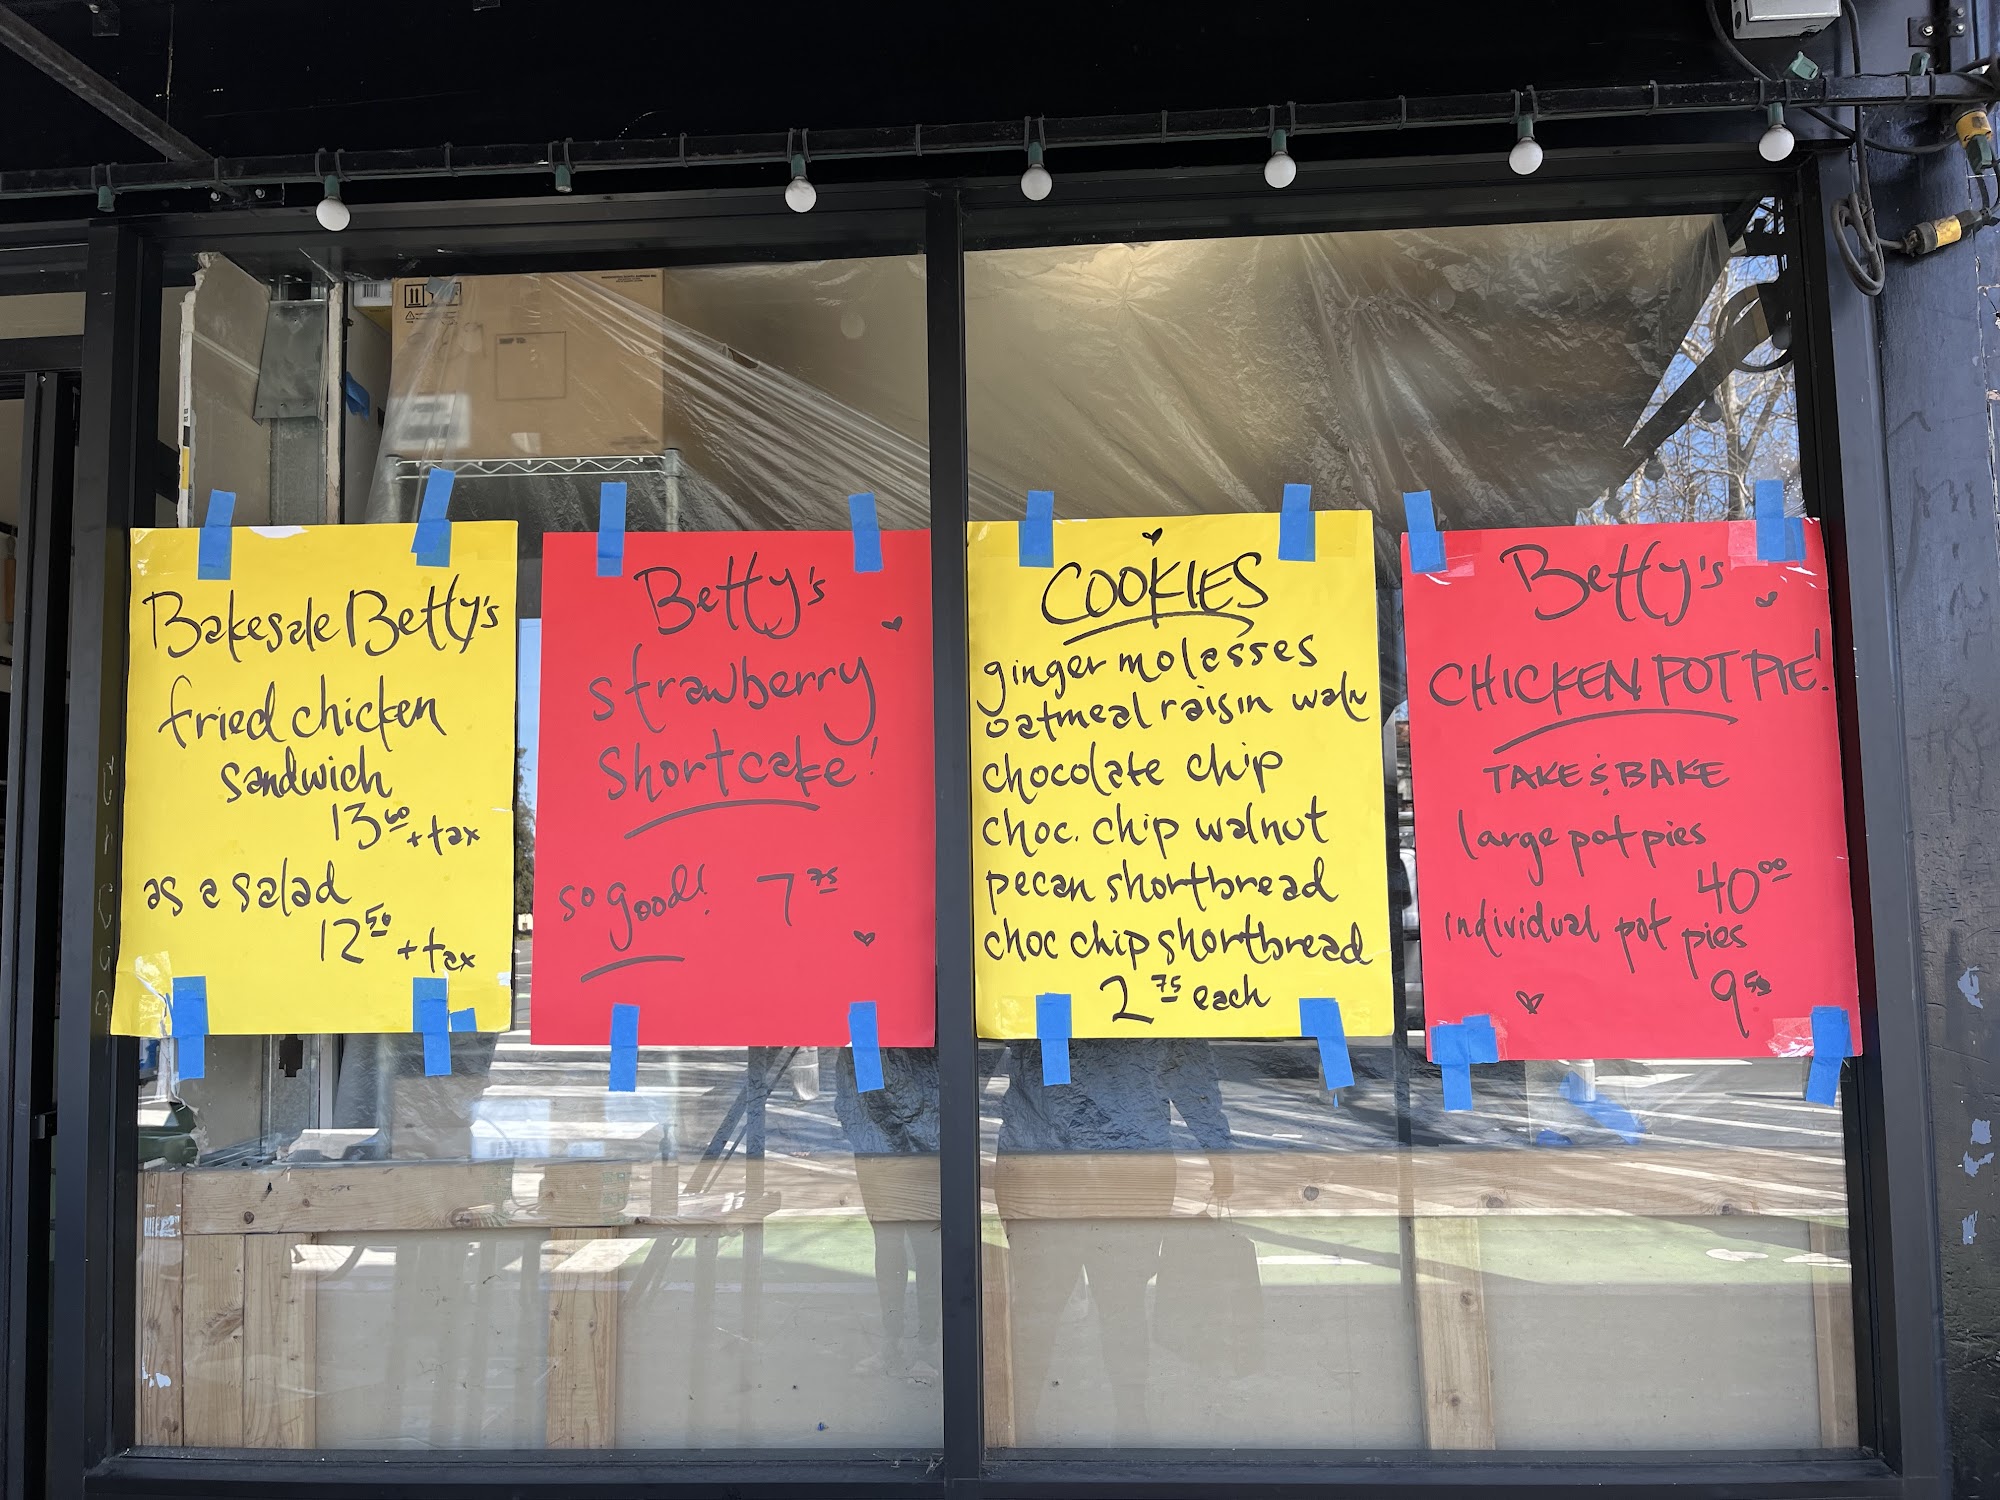 Bakesale Betty's
fried chicken
sandwich
13.60 + tax
as a salad
12.50 + tax
Betty's
strawberry
shortcake!
so good! 7.75
COOKIES
ginger molasses
oatmeal raisin waln
chocolate chip
choc. chip walnut
pecan shortbread
choc chip shortbread
2.75 each
Betty's
CHICKEN POT PIE!
TAKE & BAKE
large pot pies
40.00
individual pot pies
9.50
SHIP TO: